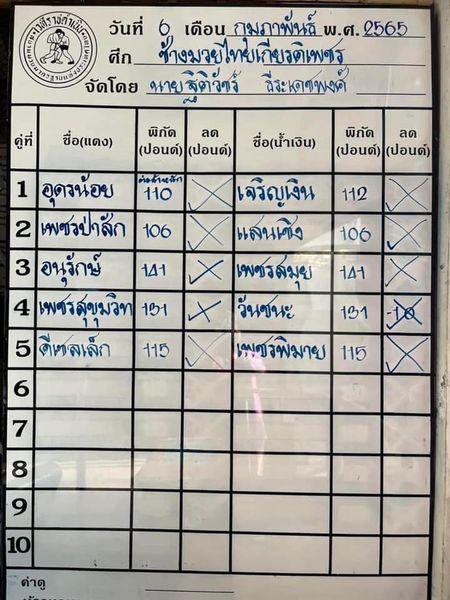 เวทีราชดำเนิน
วันที่ 6 เดือน กุมภาพันธ์ พ.ศ. 2565
ศึก ช้างมวยไทยเกียรติเพชร
จัดโดย นายฐิติวัชร์ ธีระเดชพงศ์
คู่ที่ ชื่อ(แดง) พิกัด (ปอนด์) ลด (ปอนด์) ชื่อ(น้ำเงิน) พิกัด (ปอนด์) ลด (ปอนด์)
1 อุดรน้อย 110 เจริญเงิน 112
2 เพชรป่าสัก 106 แสนเชิง 106
3 อนุรักษ์ 141 เพชรสมุย 141
4 เพชรสุขุมวิท 131 วันชนะ 131 -10
5 ดีเซลเล็ก 115 เพชรพิมาย 115
6
7
8
9
10
ค่าดู